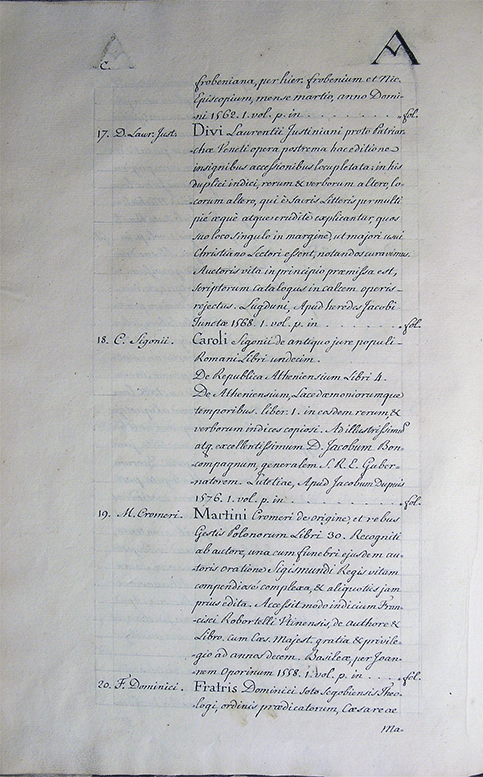 A
C.
frobeniana, per hier. frobenium et Nic.
Episcopium, mense martio, anno Domi-
ni 1562. 1. vol. p. in . . . . . . . . fol.
17. D. Laur. Just. Divi Laurentii Justiniani proti Patriar-
chæ Veneti opera postrema hac editione
insignibus accessionibus locupletata: in his
duplici indici, rerum & verborum altero, lo-
corum altero, qui è sacris Litteris per multi
piè æquè atque eruditè explicantur, quos
suo loco singulo in margine, ut majori usui
Christiano Lectori essent, notandos curavimus.
Auctoris vita in principio præmissa est,
scriptorum catalogus in calcem operis-
rejectus. Lugduni, Apud heredes Jacobi
Junctæ 1568. 1. vol. p. in . . . . . . . fol.
18. C. Sigonii. Caroli Sigonii de antiquo jure populi-
Romani Libri undecim.
De Republica Atheniensium Libri 4.
De Atheniensium, Lacedæmoniorumque
temporibus. liber. 1. in eosdem rerum, &
verborum indices copiosi. Ad illustrissimũ
atq. excellentissimum D. Jacobum Bon-
compagnum generalem S. R. E. Guber-
natorem. Lutetiæ, Apud Jacobum Dupuis
1576. 1. vol. p. in . . . . . . . . . fol.
19. M. Cromeri. Martini Cromeri de origine, et rebus
Gestis Polonorum Libri 30. Recogniti
ab autore, una cum funebri ejusdem au-
toris oratione Sigismundi Regis vitam
compendiosè complexa, & aliquotiès jam
prius edita. Accessit modo indicium Fran-
cisci Robortelli Utinensis, de authore &
Libro. cum Cæs. Majest. gratia & privile-
gio ad annos decem. Basileæ, per Joan-
nem Oporinum 1558. 1. vol. p. in . . . . fol.
20. F. Dominici. Fratris Dominici Soto Segobiensis Theo-
logi, ordinis prædicatorum, Cæsareæ
ma-